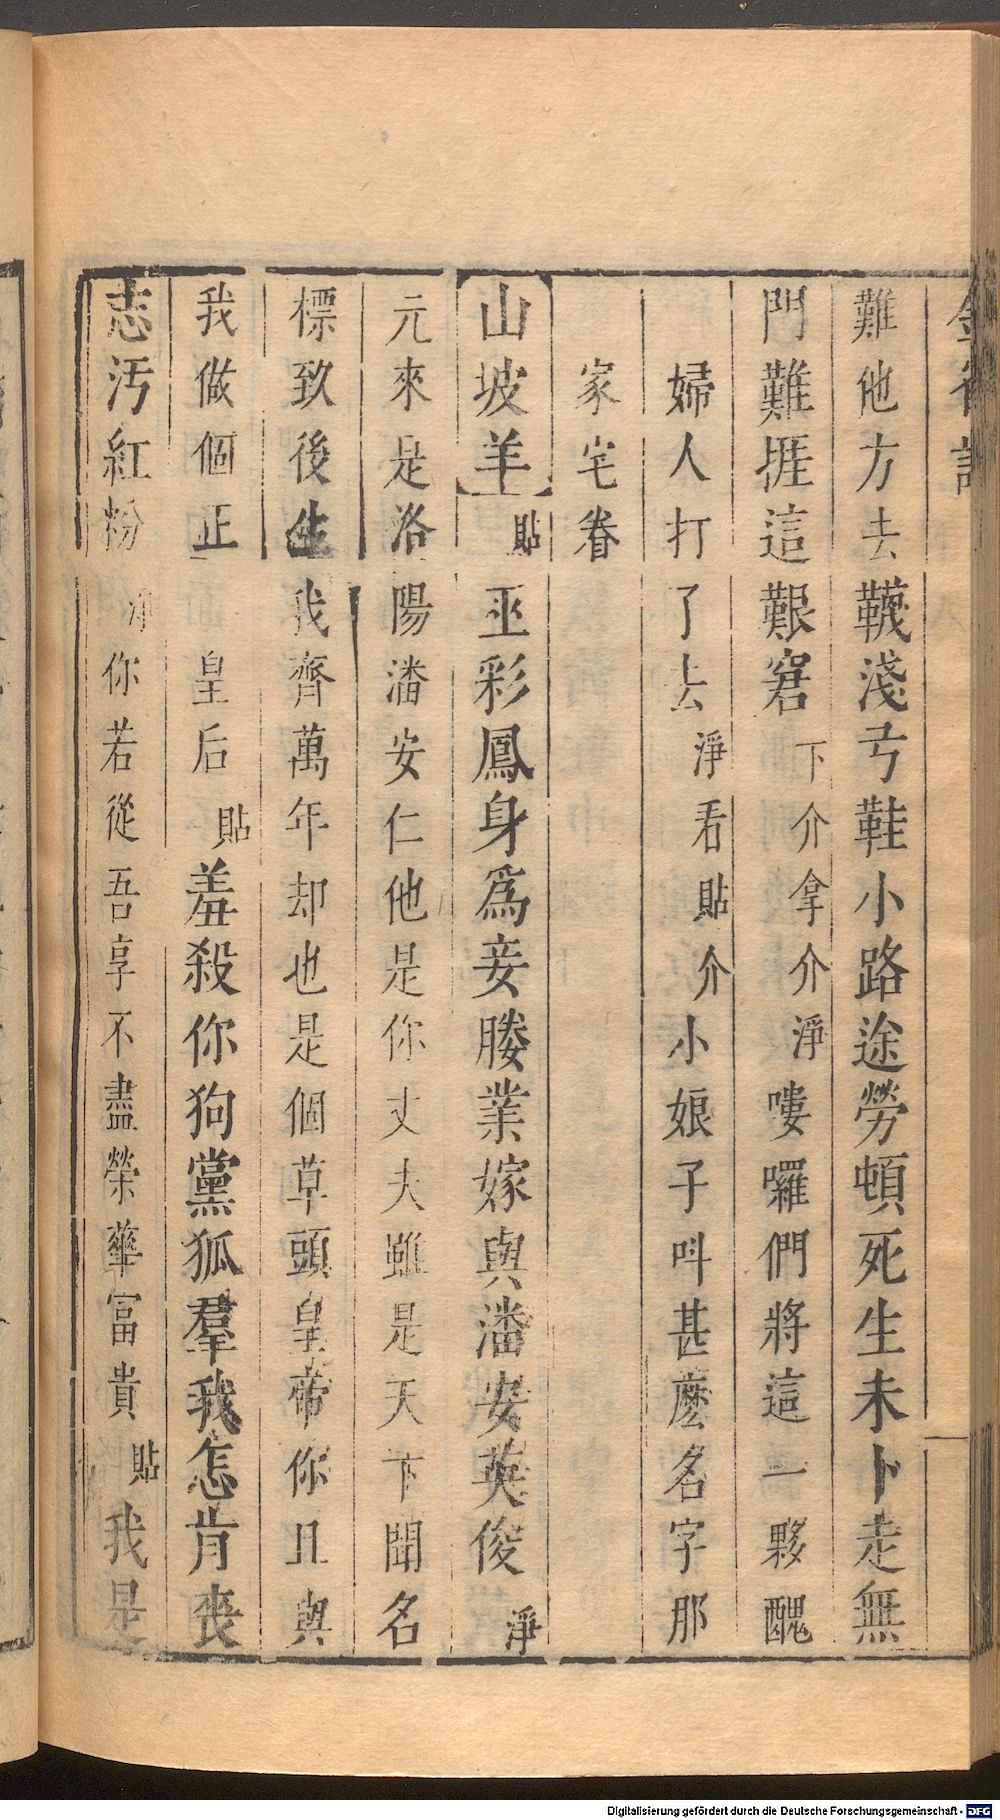 難他方去韈淺弓鞋小路途勞頓死生未卜走無
門難捱這艱窘下介拿介淨嘍囉們將這一夥醜
婦人打了去淨看貼介小娘子呌甚麼名字那
家宅眷
山坡羊貼巫彩鳳身爲妾媵業嫁與潘安英俊淨
元來是洛陽潘安仁他是你丈夫雖是天下聞名
標致後生我齊萬年却也是個草頭皇帝你且與
我做個正皇后貼羞殺你狗黨狐羣我怎肯喪
志汚紅粉淨你若從吾享不盡榮華富貴貼我是
Digitalisierung gefördert durch die Deutsche Forschungsgemeinschaft - DFG